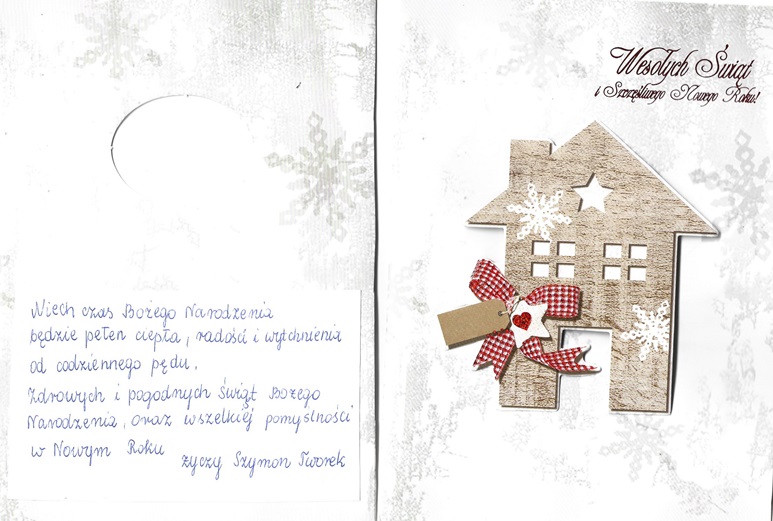 Niech czas Bożego Narodzenia
będzie pełen ciepła, radości i wytchnienia
od codziennego pędu.
Zdrowych i pogodnych Świąt Bożego
Narodzenia, oraz wszelkiej pomyślności
w Nowym Roku
życzy Szymon Tworek
Wesołych Świąt
i Szczęśliwego Nowego Roku!